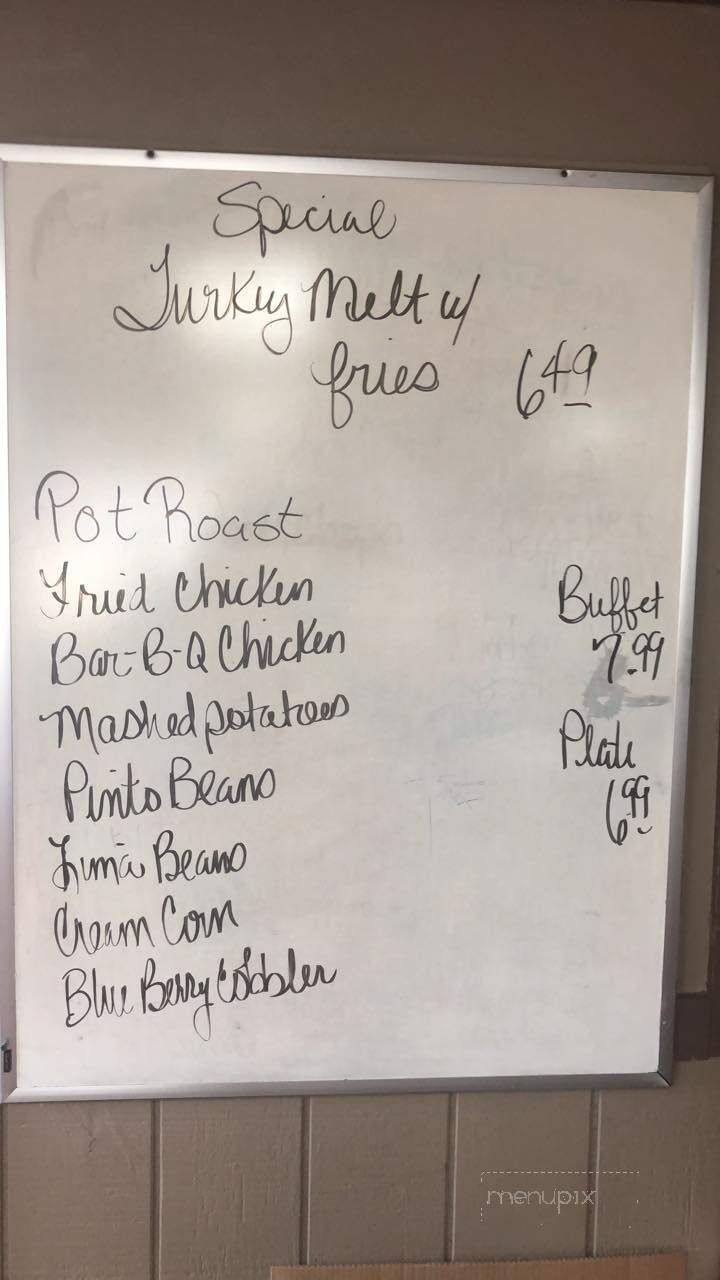 Special
Turkey Melt w/
fries 6 49
Pot Roast
Fried Chicken
Bar-B-Q Chicken
Mashed potatoes
Pinto Beans
Lima Beans
Cream Corn
Blue Berry Cobbler
Buffet
7.99
Plate
6.99
menupix